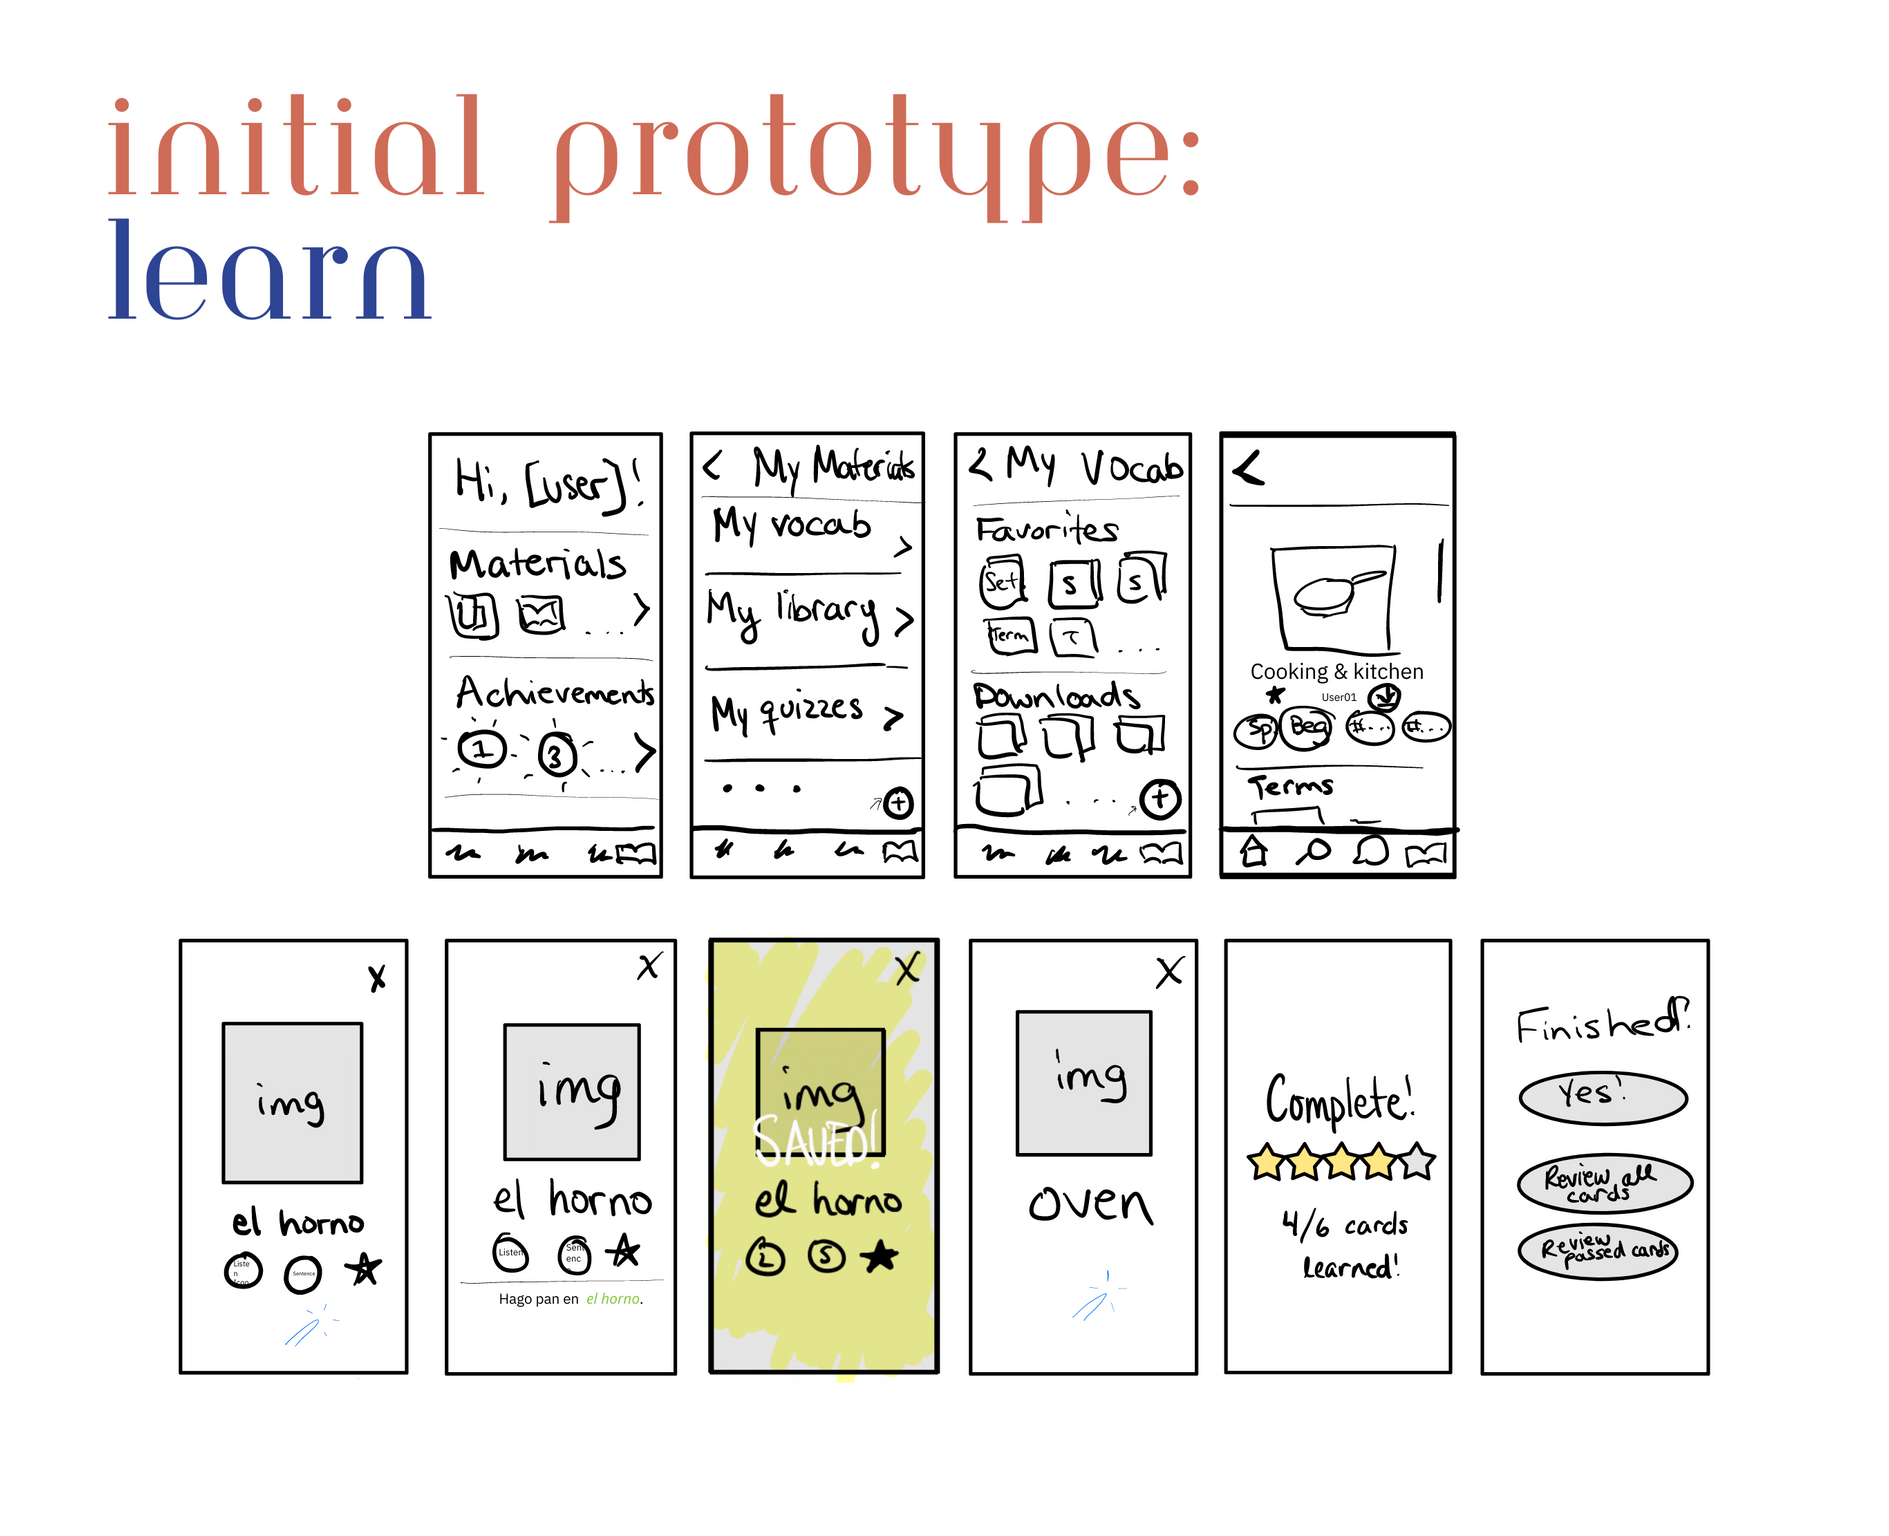 initial prototype:
learn
Hi, [user]!
Materials
...
Achievements
1 3 ...
< My Materials
My vocab >
My library >
My quizzes >
...
+
< My Vocab
Favorites
Set S S
Term T ...
Downloads
... +
<
Cooking & kitchen
User01
Sp Beg #... #...
Terms
X
img
el horno
Liste
n
Icon
Sentence
X
img
el horno
Listen
Sent
enc
Hago pan en el horno.
X
img
SAVED!
el horno
L S
X
img
oven
Complete!
4/6 cards
learned!
Finished?
Yes!
Review all
cards
Review
passed cards